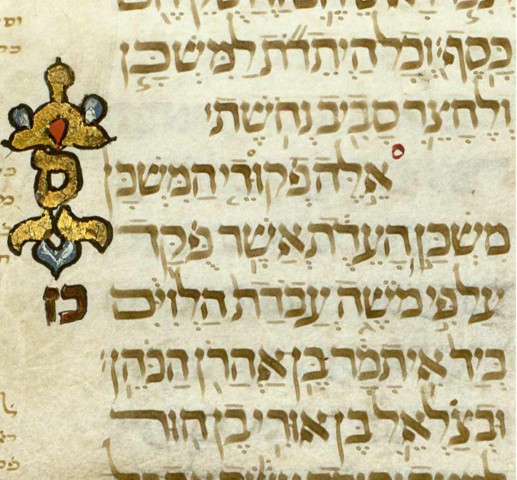 כָּסֶף׃ וְכָל הַיְתֵדֹת לַמִּשְׁכָּן
וְלֶחָצֵר סָבִיב נְחֹשֶׁת׃
אֵלֶּה פְקוּדֵי הַמִּשְׁכָּן
ס
מִשְׁכַּן הָעֵדֻת אֲשֶׁר פֻּקַּד
עַל פִּי מֹשֶׁה עֲבֹדַת הַלְוִיִּם
כו
בְּיַד אִיתָמָר בֶּן אַהֲרֹן הַכֹּהֵן׃
וּבְצַלְאֵל בֶּן אוּרִי בֶן חוּר